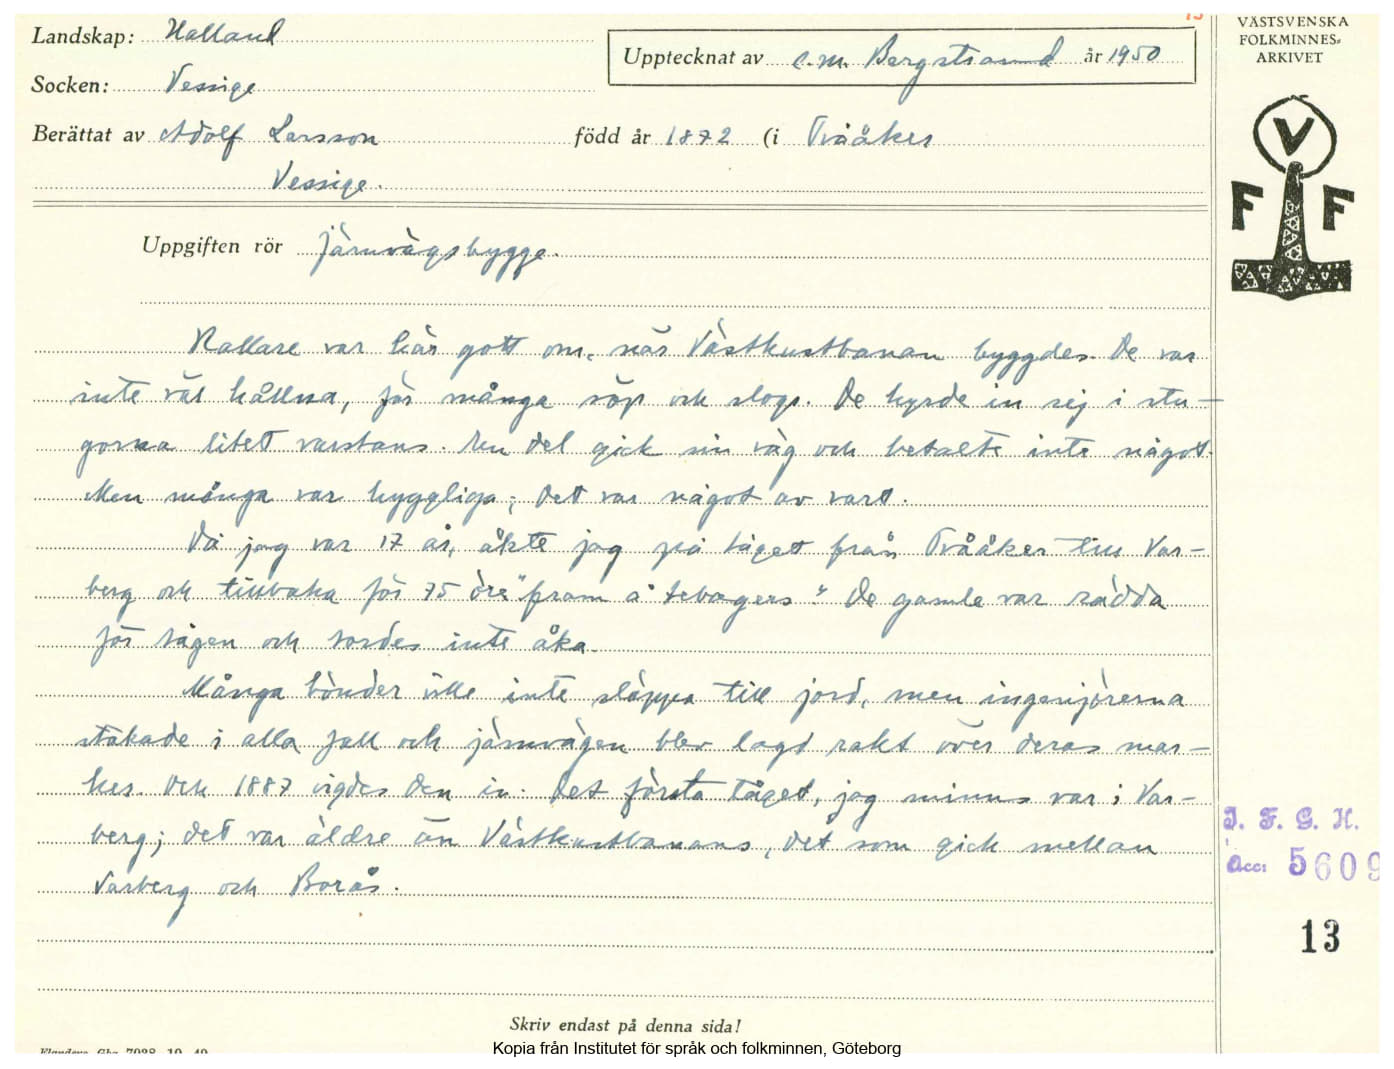 Landskap: Halland
Upptecknat av C.M. Bergstrand år 1950
Socken: Vessige
Berättat av Adolf Larsson född år 1872 (i Tvååker
Vessige.
VÄSTSVENSKA
FOLKMINNES-
ARKIVET
V
F F
Uppgiften rör Järnvägsbygge.
Rallare var här gott om, när Västkustbanan byggdes. De var
inte väl hållna, för många söp och slogs. De hyrde in sig i stu-
gorna litet varstans. En del gick sin väg och betalte inte något.
Men många var hyggliga; det var något av vart.
Då jag var 17 år, åkte jag på tåget från Tvååker till Var-
berg och tillbaka för 75 öre "fram å tebagers". De gamle var rädda
för tågen och tordes inte åka.
Många bönder ville inte släppa till jord, men ingenjörerna
stakade i alla fall och järnvägen blev lagd rakt över deras mar-
ker. Och 1887 vigdes den in. Det första tåget, jag minns var i Var-
berg; det var äldre än Västkustbanans, det som gick mellan
Varberg och Borås.
I. F. G. H.
Acc: 5609
13
Skriv endast på denna sida!
Kopia från Institutet för språk och folkminnen, Göteborg